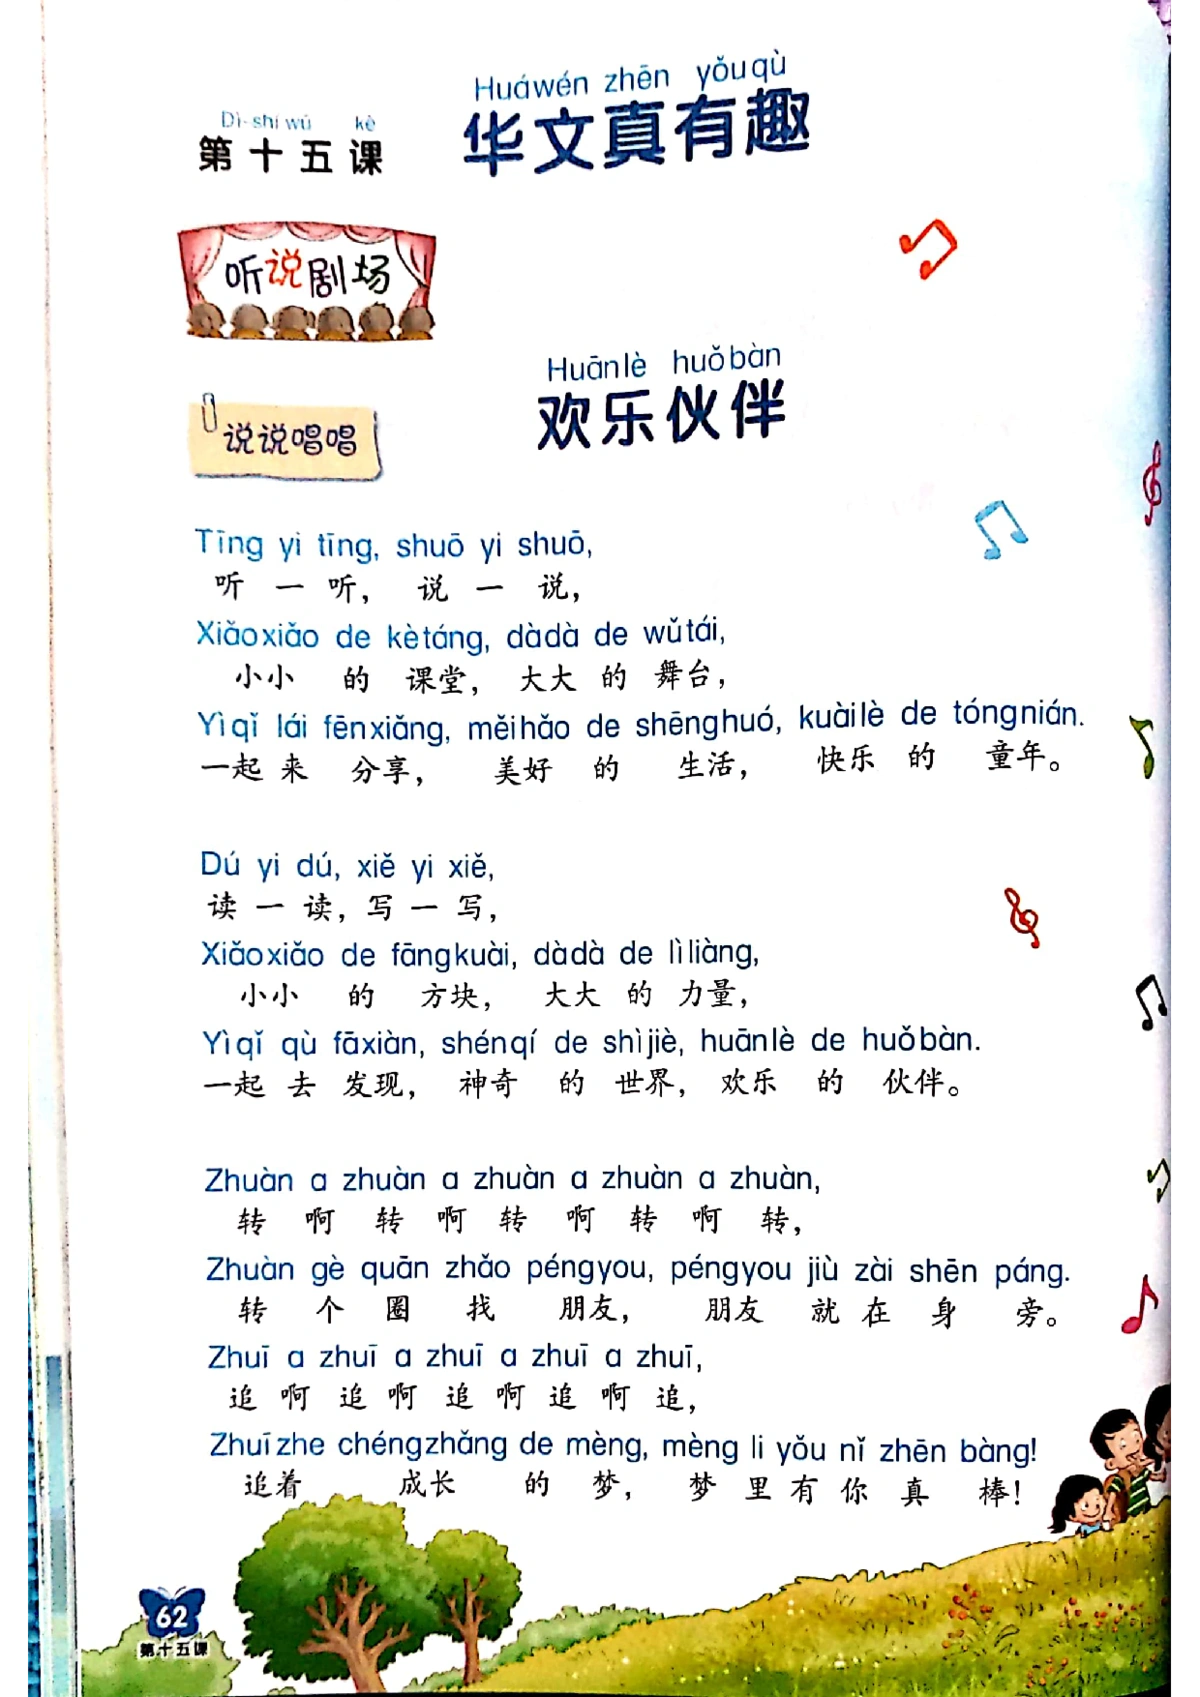 Dì-shíwǔ kè
第十五课
Huáwén zhēn yǒuqù
华文真有趣
听说剧场
Huānlè huǒbàn
欢乐伙伴
说说唱唱
Tīng yi tīng, shuō yi shuō,
听一听，说一说，
Xiǎoxiǎo de kètáng, dàdà de wǔtái,
小小的课堂，大大的舞台，
Yìqǐ lái fēnxiǎng, měihǎo de shēnghuó, kuàilè de tóngnián.
一起来分享，美好的生活，快乐的童年。
Dú yi dú, xiě yi xiě,
读一读，写一写，
Xiǎoxiǎo de fāngkuài, dàdà de lìliàng,
小小的方块，大大的力量，
Yìqǐ qù fāxiàn, shénqí de shìjiè, huānlè de huǒbàn.
一起去发现，神奇的世界，欢乐的伙伴。
Zhuàn a zhuàn a zhuàn a zhuàn a zhuàn,
转啊转啊转啊转啊转，
Zhuàn gè quān zhǎo péngyou, péngyou jiù zài shēn páng.
转个圈找朋友，朋友就在身旁。
Zhuī a zhuī a zhuī a zhuī a zhuī,
追啊追啊追啊追啊追，
Zhuīzhe chéngzhǎng de mèng, mèng li yǒu nǐ zhēn bàng!
追着成长的梦，梦里有你真棒！
62
第十五课